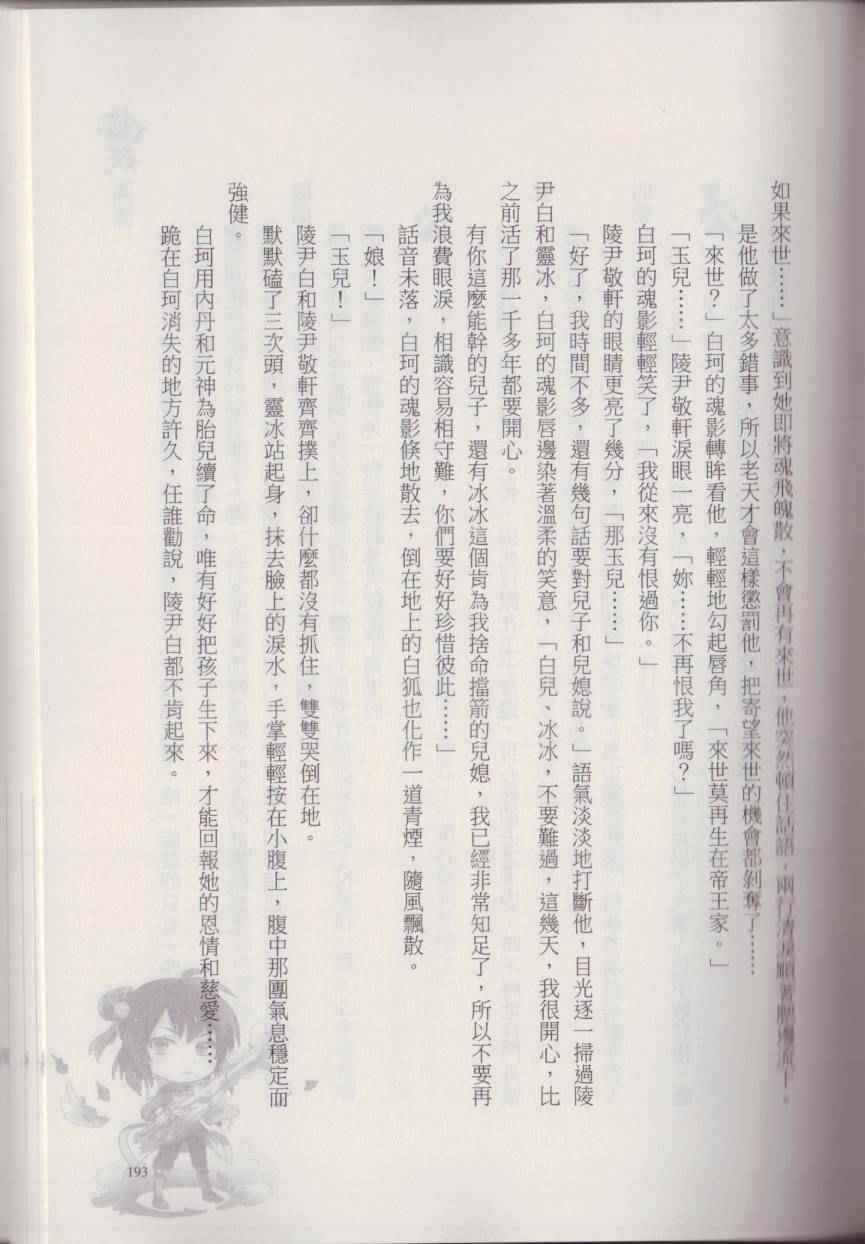 如果來世……」意識到她即將魂飛魄散，不會再有來世，他突然頓住話語，兩行清淚順著臉頰流下。
是他做了太多錯事，所以老天才會這樣懲罰他，把寄望來世的機會都剝奪了……
「來世？」白珂的魂影轉眸看他，輕輕地勾起唇角，「來世莫再生在帝王家。」
「玉兒……」陵尹敬軒淚眼一亮，「妳……不再恨我了嗎？」
白珂的魂影輕輕笑了，「我從來沒有恨過你。」
陵尹敬軒的眼睛更亮了幾分，「那玉兒……」
「好了，我時間不多，還有幾句話要對兒子和兒媳說。」語氣淡淡地打斷他，目光逐一掃過陵
尹白和靈冰，白珂的魂影唇邊染著溫柔的笑意，「白兒、冰冰，不要難過，這幾天，我很開心，比
之前活了那一千多年都要開心。
有你這麼能幹的兒子，還有冰冰這個肯為我捨命擋箭的兒媳，我已經非常知足了，所以不要再
為我浪費眼淚，相識容易相守難，你們要好好珍惜彼此……」
話音未落，白珂的魂影倏地散去，倒在地上的白狐也化作一道青煙，隨風飄散。
「娘！」
「玉兒！」
陵尹白和陵尹敬軒齊齊撲上，卻什麼都沒有抓住，雙雙哭倒在地。
默默磕了三次頭，靈冰站起身，抹去臉上的淚水，手掌輕輕按在小腹上，腹中那團氣息穩定而
強健。
白珂用內丹和元神為胎兒續了命，唯有好好把孩子生下來，才能回報她的恩情和慈愛……
跪在白珂消失的地方許久，任誰勸說，陵尹白都不肯起來。
193